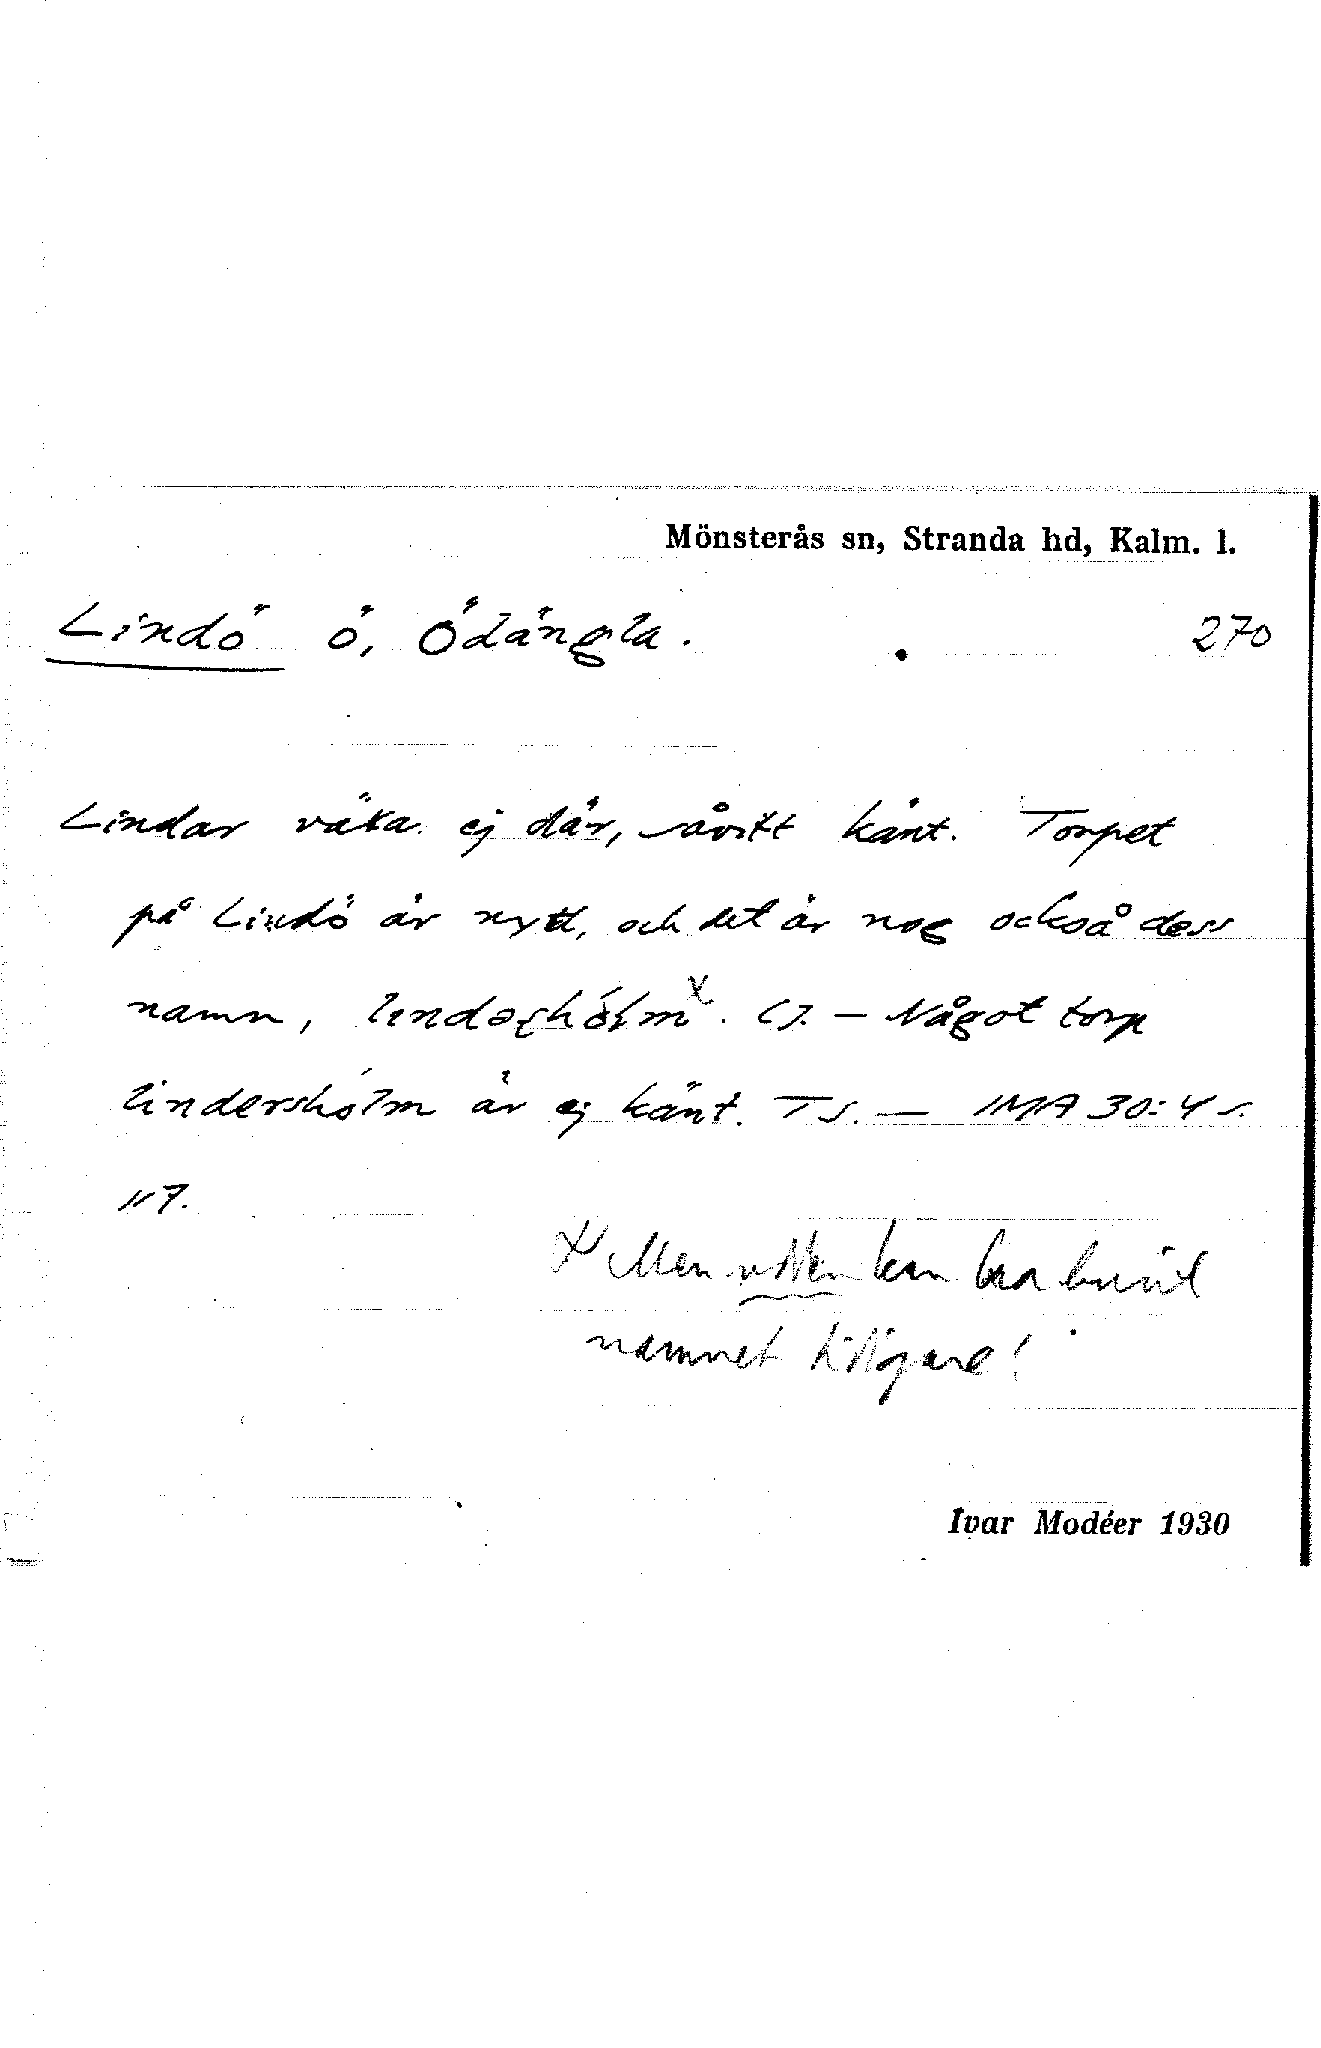 Mönsterås sn, Stranda hd, Kalm. l.
Lindö ö, Ödängla. 270
Lindar växa ej där, såvitt känt. Torpet
på Lindö är nytt, och det är nog också dess
namn, lındəʂhólm x. CJ. – Något torp
lindershólm är ej känt. TS. — IMA 30:4 s.
117.
x Men kan ha burit
namnet tidigare!
Ivar Modéer 1930